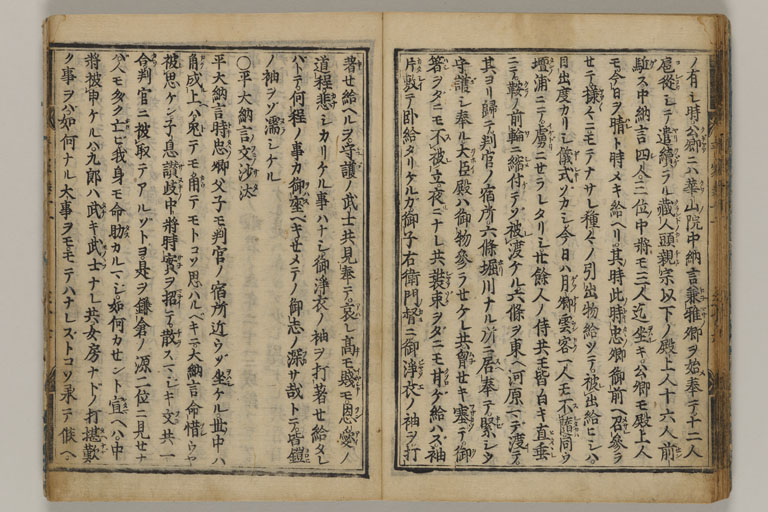 ノ有シ時公卿ニハ華山院中納言兼雅卿ヲ始奉テ十二人
扈從シテ遣續ラル藏人頭親宗以下ノ殿上人十六人前
駈ス中納言四人三位中將モ三人迄坐キ公卿モ殿上人
モ今日ヲ晴ト時メキ給ヘリ其時此時忠卿御前ヘ召參ラ
セテ様々ニモテナサレ種々ノ引出物給ツテ被出給ヒシハ
目出度カリシ儀式ソカシ今日ハ月卿雲客一人モ不隨同ウ
壇浦ニテ虜ニセラレタリシ廿餘人ノ侍共モ皆白キ直垂
ニテ鞍ノ前輪ニ縮付テソ被渡ケル六條ヲ東ヘ河原マデ渡テ
其ヨリ歸テ判官ノ宿所六條堀川ナル所ニ居奉テ緊シウ
守護シ奉ル大臣殿ハ御物參ラセケレ共胷セキ塞テ御
箸ヲダニモ不被立夜ニナレ共裝束ヲダニモ甘ゲ給ハズ袖
片敷テ卧給タリケルガ御子右衛門督ニ御淨衣ノ袖ヲ打
著セ給ヘルヲ守護ノ武士共見奉テ哀レ高モ賤モ恩愛ノ
道程悲シカリケル事ハナシ御淨衣ノ袖ヲ打著セ給タレ
バトテ何程ノ事カ御座ベキセメテノ御志ノ深サ哉トテ皆鎧
ノ袖ヲゾ濡シケル
○平大納言文沙汰
平大納言時忠卿父子モ判官ノ宿所近ウゾ坐ケル世中ハ
角成上ハ兎テモ角テモトコソ思ハルベキニ大納言命惜ウヤ
被思ケン子息讃岐中將時實ヲ招テ散スマジキ文共ヲ一
合判官ニ被取テアルゾトヨ是ヲ鎌倉ノ源二位ニ見セナ
バ人モ多ク亡ビ我身モ命助カルマジ如何カセント宣ヘハ中
將被申ケルハ九郎ハ武キ武士ナレ共女房ナドノ打歎
ク事ヲハ如何ナル大事ヲモモテハナレズトコソ承テ候ヘ